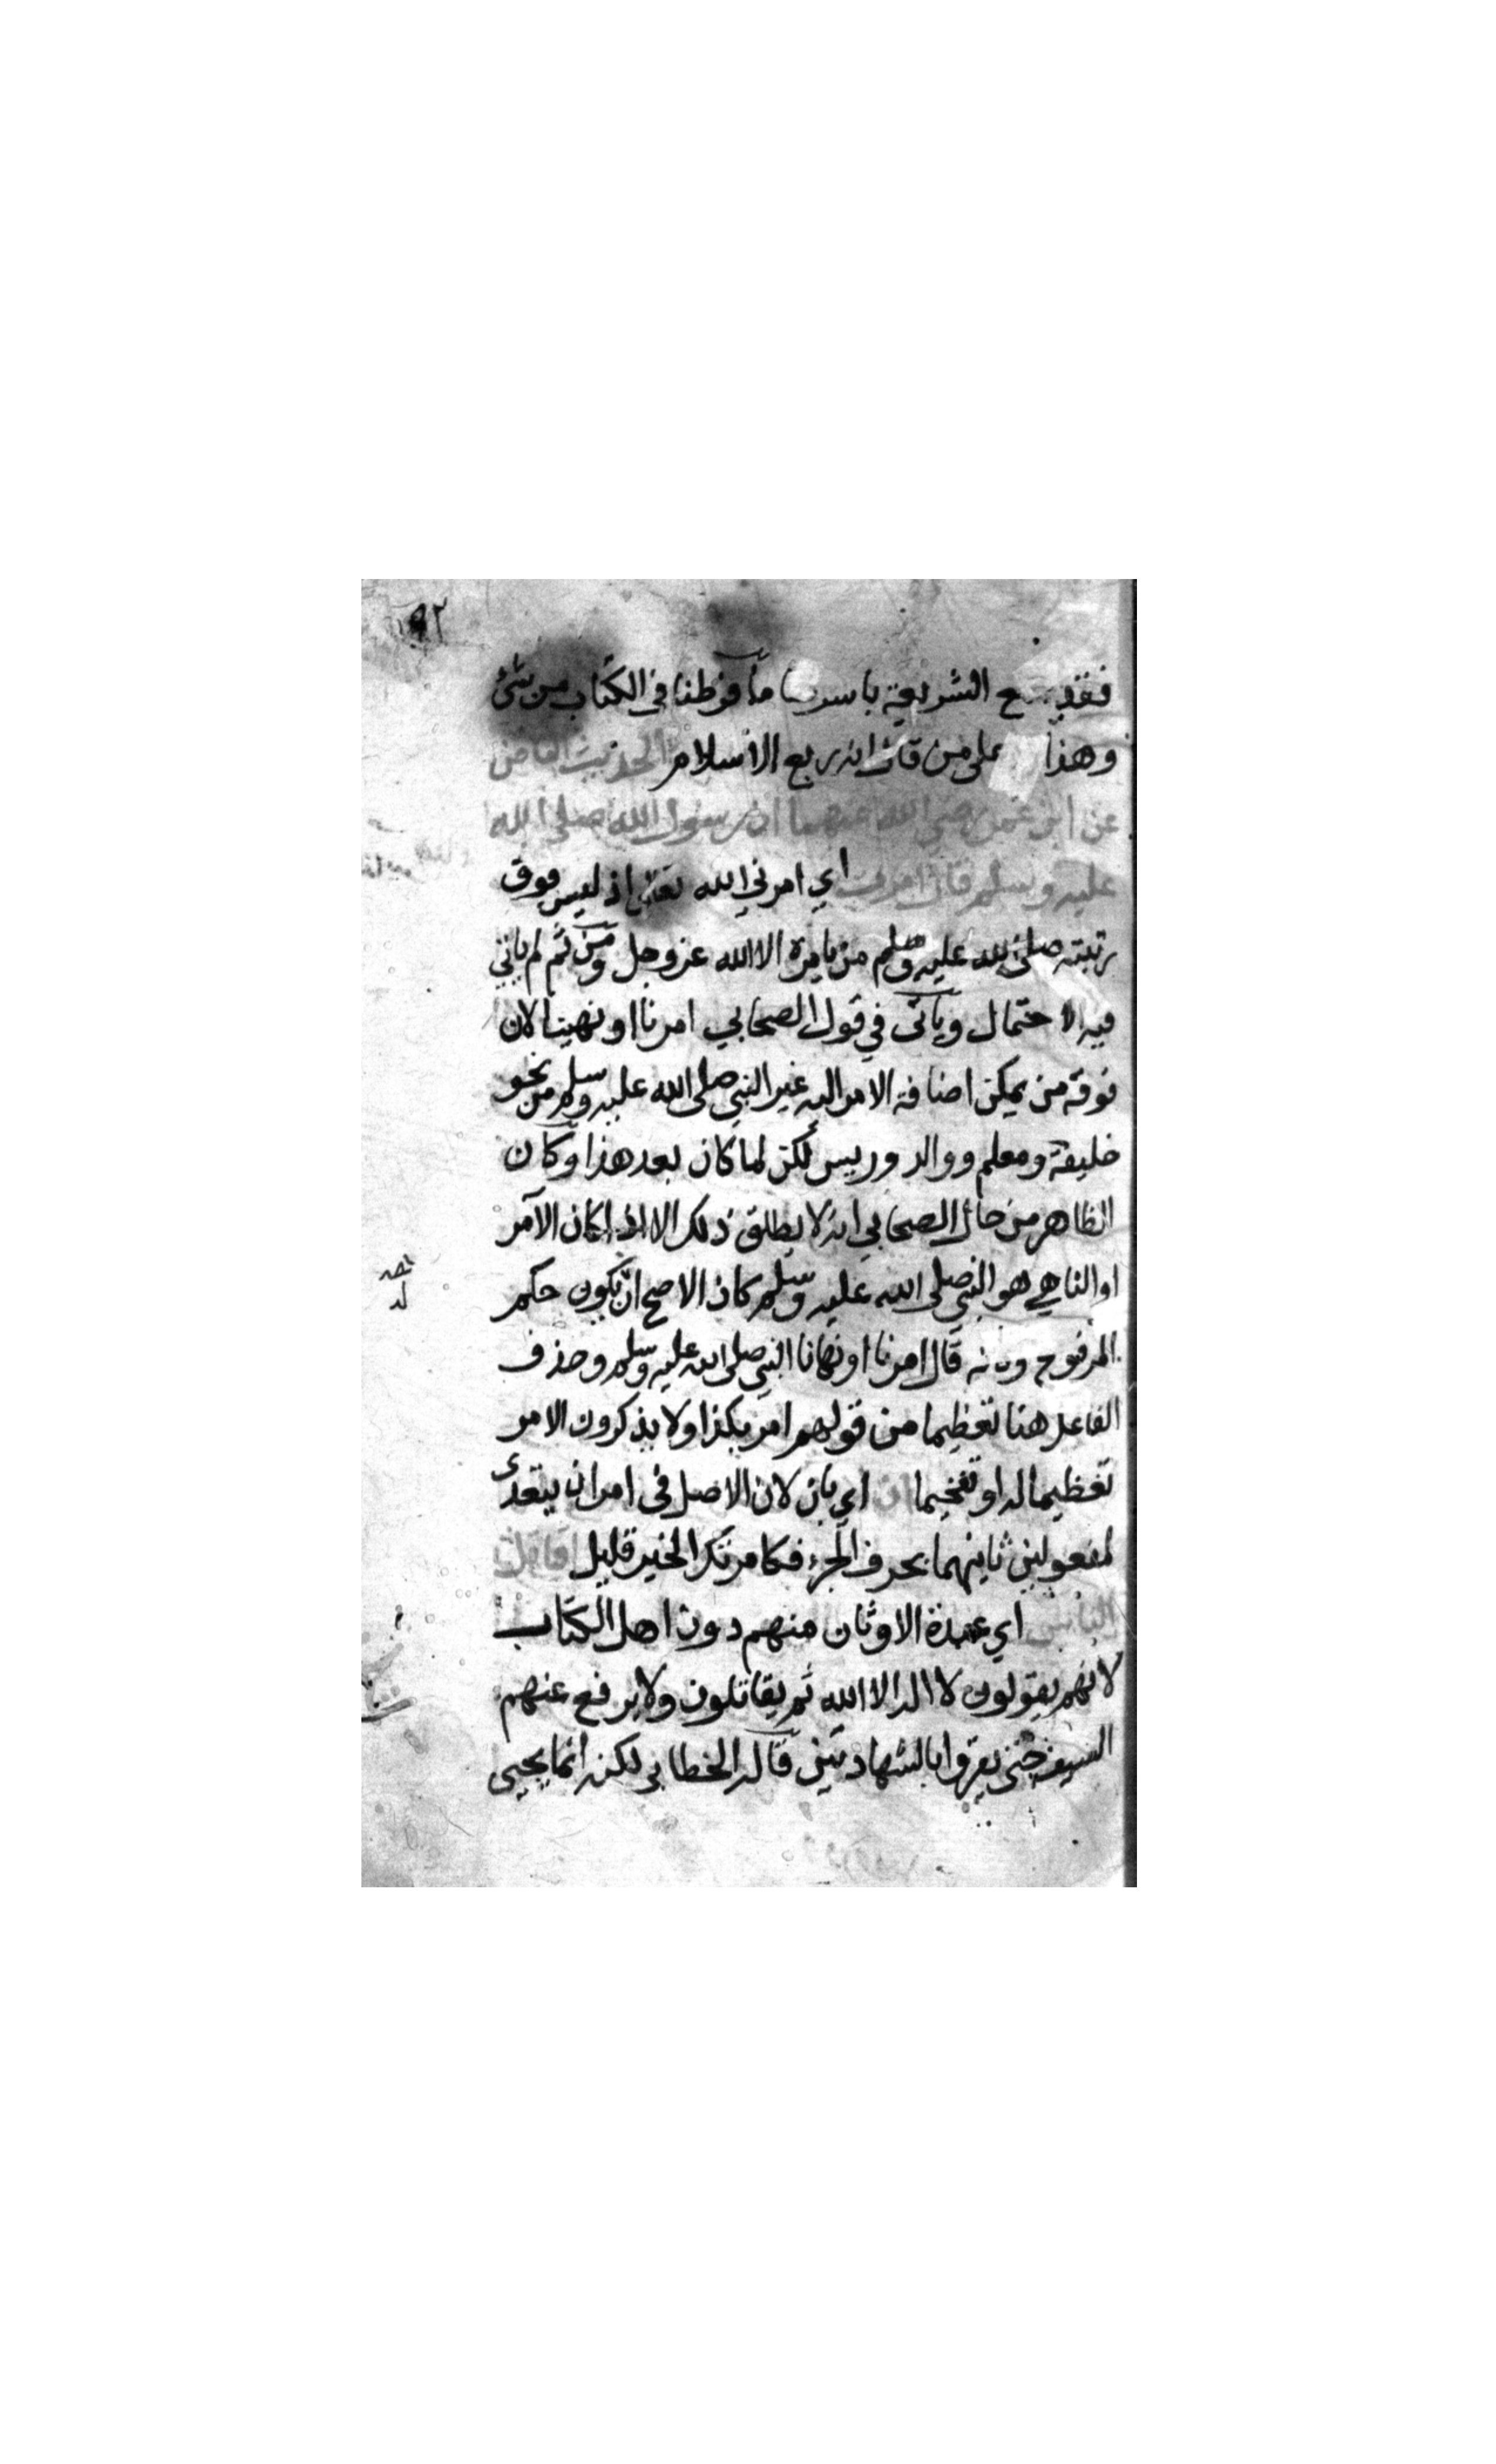 ٩٢
فقد ع الشريعة باسرها ما فرطنا في الكتاب من شئ
وهذا على من قال انه ربع الاسلام الحديث الثامن
عن ابن عمر رضي الله عنهما ان رسول الله صلى الله
عليه وسلم قال امرت اي امرني الله تعالى اذ ليس فوق
رتبته صلى الله عليه وسلم من يامره الا الله عز وجل ومن ثم لم ياتي
فيه الا حتمال وياتى في قول الصحابي امرنا او نهينا لان
فوقه من يمكن اضافة الامر اليه غير النبي صلى الله عليه وسلم من نحو
خليفة ومعلم ووالد وريس لكن لما كان بعد هذا وكان
الظاهر من حال الصحابي انه لا يطلق ذلك الا اذا كان الآمر
او الناهي هو النبي صلى الله عليه وسلم كان الاصح ان يكون حكم
المرفوع وانه قال امرنا او نهانا النبي صلى الله عليه وسلم وحذف
الفاعل هنا تعظيما من قولهم امر بكذا ولا يذكرون الامر
تعظيما له او تفخيما ان اي بان لان الاصل في امر ان يتعدى
لمفعولين ثانيهما بحرف الجر فكامرتك الخير قليل اقاتل
الناس اي عبدة الاوثان منهم دون اهل الكتاب
لانهم يقولون لا اله الا الله ثم يقاتلون ولا يرفع عنهم
السيف حتى يقروا بالشهادتين قاله الخطابي لكن انما يجي